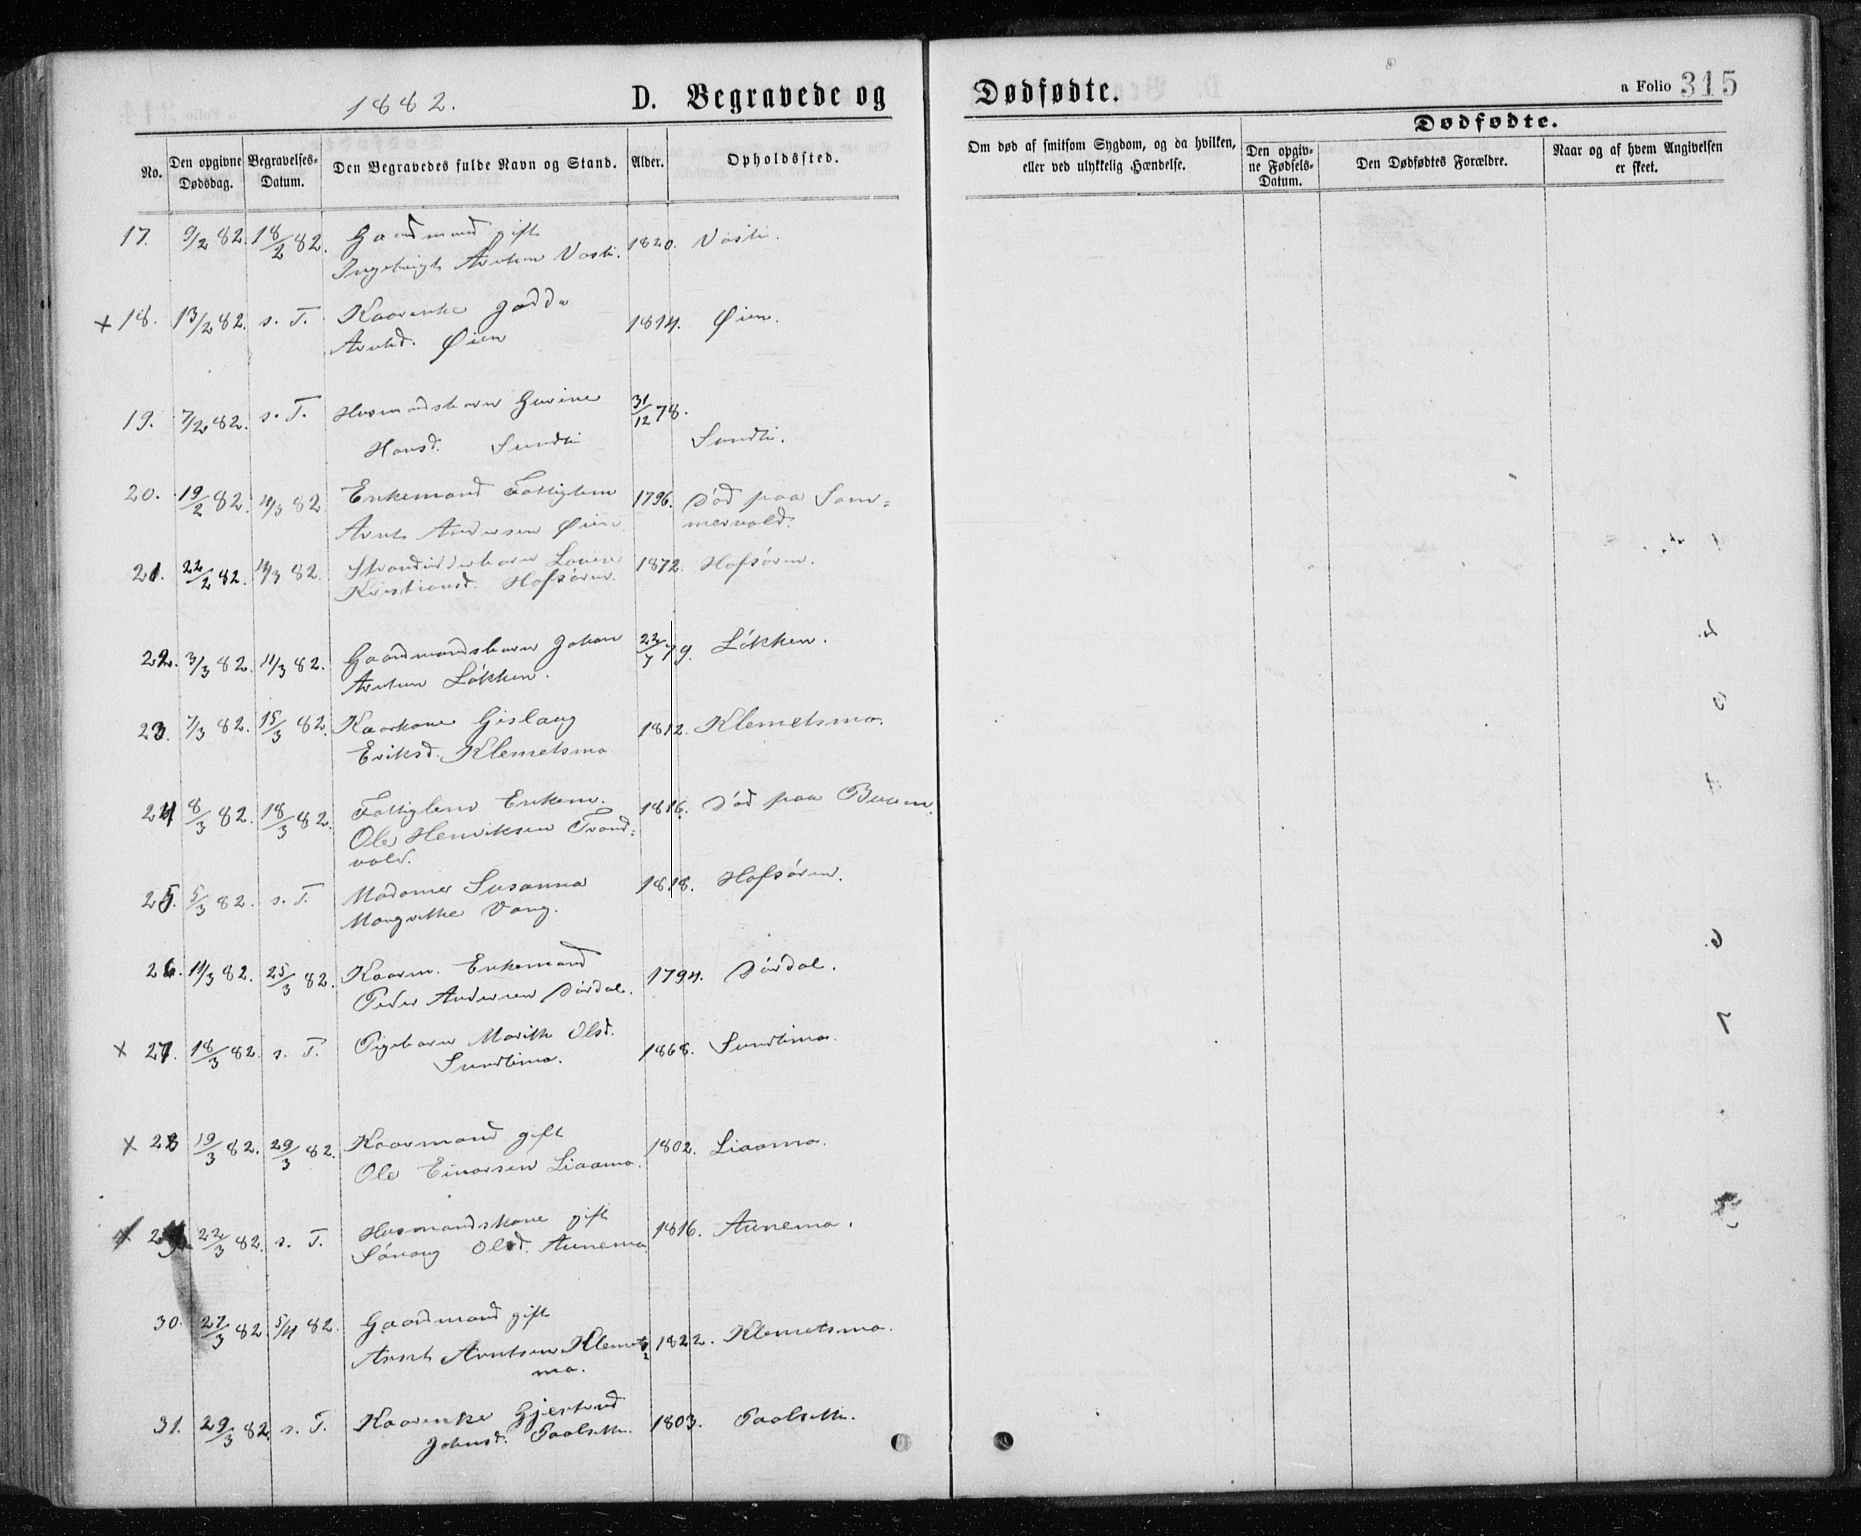 1882.
D. Begravede og
Dødfødte.
a Folio 315
No.
Den opgivne Dødsdag.
Begravelses-Datum.
Den Begravedes fulde Navn og Stand.
Alder.
Opholdssted.
Om død af smitsom Sygdom, og da hvilken,
eller ved ulykkelig Hændelse.
Dødfødte.
Den opgiv-
ne Fødsels-
Datum.
Den Dødfødtes Forældre.
Naar og af hvem Angivelsen
er skeet.
17. 9/2 82. 18/2 82. Gaardmand gift 1820.
Ingebrigt Arntsen
× 18. 13/2 82. s. T. Kaarenke 1814. Øien.
Arntsd. Øien
19. 7/2 82. s. T. Husmandsbarn Gurine 31/12 78.
Hansd. Sundli Sundli.
20. 19/2 82. 11/3 82 Enkemand Fattiglem 1796. død paa Som=
Arnt Andersen Øien mervold.
21. 22/2 82. 11/3 82. 1872. Hofsøren.
Kristiansd. Hofsøren.
22. 3/3 82. 11/3 82. Gaardmandsbarn Johan 22/7 79. Løkken.
Arntsen Løkken.
23. 7/3 82. 15/3 82. Kaarkone Gislaug 1812. Klemetsmo.
Eriksd. Klemetsmo
24 8/3 82. 18/3 82. Fattiglem Enkem. 1816. død paa
Ole Henriksen Trond=
vold.
25. 5/3 82. s. T. Madame Susanna 1818. Hofsøren.
Margrethe Vang.
26. 11/3 82. 25/3 82. Kaarm. Enkemand 1794. Dørdal.
Peder Andersen Dørdal.
× 27. 18/3 82. s. T. Pigebarn Marith Olsd. 1868. Sundlimo.
Sundlimo.
× 28 19/3 82. 29/3 82. Kaarmand gift 1802. Liaamo.
Ole Einarsen Liaamo.
× 29. 22/3 82. s. T. Husmandskone gift 1816. Aunemo.
Olsd. Aunemo
30. 27/3 82. 5/4 82. Gaardmand gift
Arnt Arntsen Klemets 1822. Klemetsmo.
mo.
31. 29/3 82. s. T. Kaarenke Gjertrud 1803. Paalseth.
Johnsd. Paalseth.